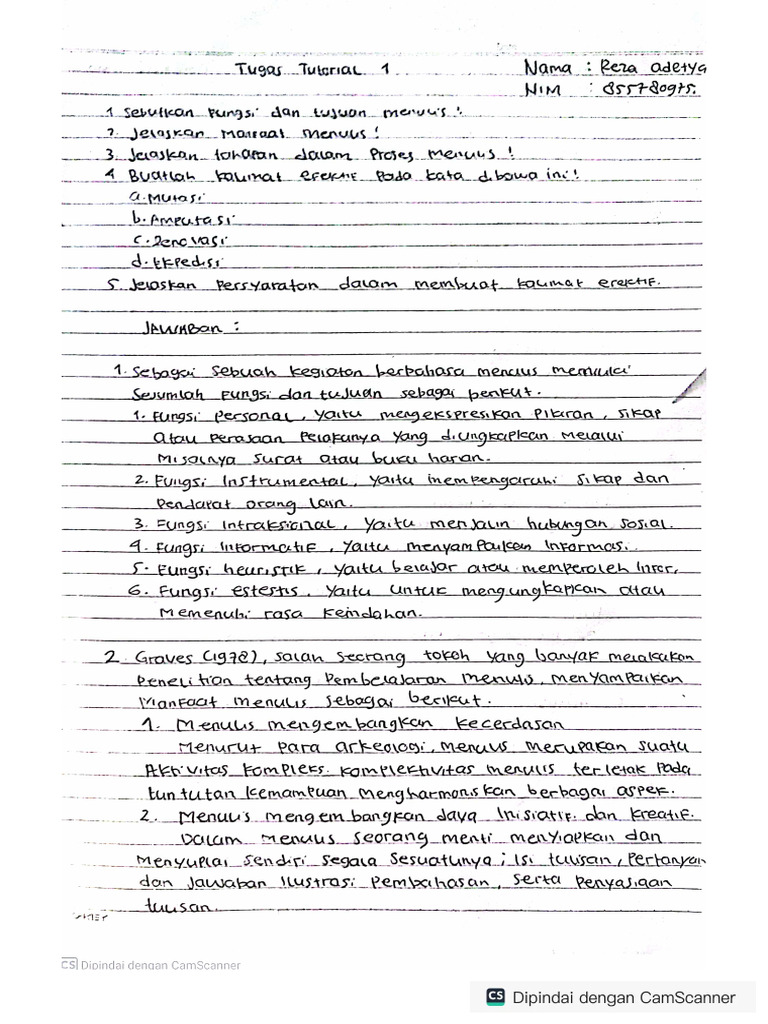 Tugas Tutorial 1
Nama : Reza adetya
NIM : 855780975.
1 Sebutkan Fungsi dan tujuan menulis !
2. Jelaskan Manfaat menulis !
3. Jelaskan tahapan dalam Proses menulis !
4 Buatlah kalimat efektif Pada kata dibawa ini !
a. Mutasi
b. Amputasi
c. Renovasi
d. Ekpedisi
5. Jelaskan Persyaratan dalam membuat kalimat efektif.
JAWABan :
1. Sebagai sebuah kegiatan berbahasa menulis memiliki
Sejumlah Fungsi dan tujuan sebagai berikut.
1. Fungsi Personal, Yaitu mengekspresikan Pikiran, sikap
atau Perasaan Pelakunya Yang diungkapkan Melalui
Misalnya surat atau buku harian.
2. Fungsi Instrumental, Yaitu mempengaruhi sikap dan
Pendapat orang lain.
3. Fungsi Intraksional, Yaitu menjalin hubungan sosial.
4. Fungsi Informatif, Yaitu menyampaikan Informasi.
5. Fungsi heuristik, Yaitu belajar atau memperoleh Infor,
6. Fungsi estestis, Yaitu untuk mengungkapkan atau
Memenuhi rasa Keindahan.
2. Graves (1978), salah seorang tokoh Yang banyak melakukan
Penelitian tentang Pembelajaran menulis, menyampaikan
Manfaat menulis sebagai berikut.
1. Menulis mengembangkan kecerdasan
Menurut Para arkeologi, menulis merupakan suatu
Aktivitas kompleks. komplektivitas menulis terletak Pada
tuntutan kemampuan mengharmoniskan berbagai aspek.
2. Menulis mengembangkan daya Inisiatif dan kreatif.
Dalam menulis seorang menti menyiapkan dan
Menyuplai sendiri segala sesuatunya ; Isi tulisan, Pertanyan
dan Jawaban Ilustrasi Pembahasan, serta Penyajiaan
tulisan.
CS Dipindai dengan CamScanner
CS Dipindai dengan CamScanner